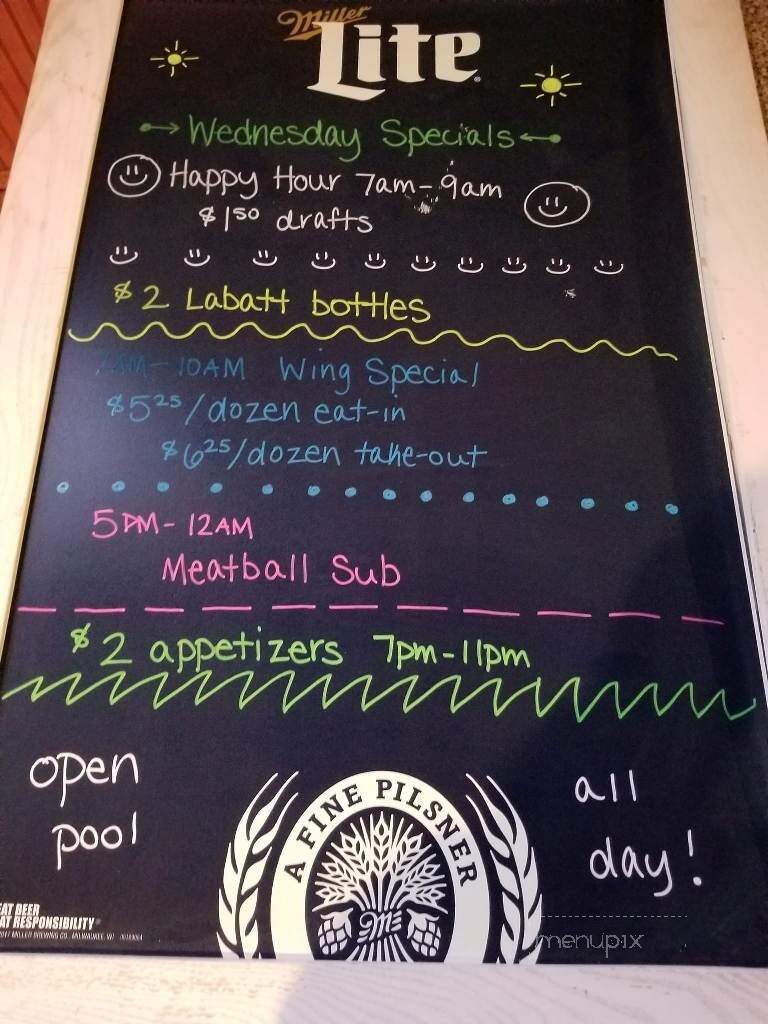 Miller
Lite
Wednesday Specials
Happy Hour 7am-9am
$1.50 drafts
$2 Labatt bottles
7AM-10AM Wing Special
$5.25/dozen eat-in
$6.25/dozen take-out
5PM-12AM
Meatball Sub
$2 appetizers 7pm-11pm
open all
pool day!
A FINE PILSNER
EAT BEER
AT RESPONSIBILITY
MILLER BREWING CO., MILWAUKEE, WI
menupix